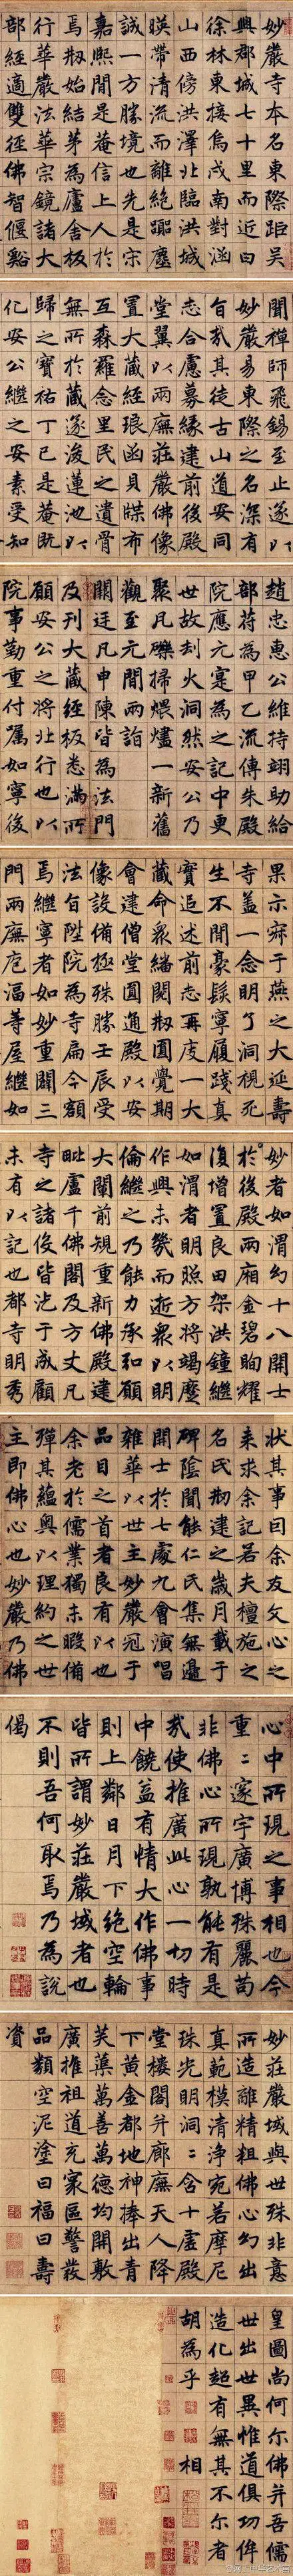 妙嚴寺本名東際距吳
興郡城七十里而近曰
徐林東接烏戍南對涵
山西傍洪澤北臨洪城
暎帶清流而離絕囂塵
誠一方勝境也先是宋
嘉熙間是菴信上人於
焉刱始結茅為廬舍板
行華嚴法華宗鏡諸大
部經適雙徑佛智偃谿
聞禪師飛錫至止遂以
妙嚴易東際之名深有
旨哉其徒古山道安同
志合慮募緣建前後殿
堂翼以兩廡莊嚴佛像
置大藏經琅函貝牒布
互森羅念里民之遺骨
無所於藏遂浚蓮池以
歸之寶祐丁巳是菴既
化安公繼之安素受知
趙忠惠公維持翊助給
部符為甲乙流傳朱殿
院應元寔為之記中更
世故刧火洞然安公乃
聚凡礫掃煨燼一新舊
觀至元間兩詣
闕廷凡申陳皆為法門
及刊大藏經板悉滿所
願安公之將北行也以
院事勤重付囑如寧後
果示寂于燕之大延壽
寺盖一念明了洞視死
生不間豪髮寧履踐真
實追述前志再度一大
藏命衆繙閱刱圎覺期
會建僧堂圎通殿以安
像設備極殊勝壬辰受
法旨陞院為寺扁今額
焉繼寧者如妙重闢三
門兩廡庖湢等屋繼如
妙者如渭幻十八開士
於後殿兩廂金碧眴耀
復增置良田架洪鐘繼
如渭者明照方將竭麼
作興未幾而逝衆以明
倫繼之乃能力承和願
大闡前規重新佛殿建
毗盧千佛閣及方丈凡
寺之諸役皆沰于成顧
未有以記也都寺明秀
狀其事囙余友文心之
来求余記若夫檀施之
名氏刱建之歲月載于
碑陰聞能仁氏集無邊
開士於七處九會演唱
雜華以世主妙嚴冠于
品目之首者良有以也
余老於儒業獨未暇備
殫其蘊奧以理約之世
主即佛心也妙嚴乃佛
心中所現之事相也今
重二邃宇廣博殊麗苟
非佛心所現孰能有是
哉使推廣此心一切時
中饒益有情大作佛事
則上鄰日月下絕空輪
皆所謂妙莊嚴域者也
不則吾何取焉乃為說
偈
妙莊嚴域與世殊非意
所造離精粗佛心幻出
真範模清浄宛若摩尼
珠光明洞二含十虛殿
堂樓閣并廊廡天人降
下黃金都地神捧出青
芙蕖萬善萬德均開敷
廣推祖道充家區警發
品類空泥塗曰福曰壽
資
皇圖尚何尔佛并吾儒
世出世異惟道俱功侔
造化超有無其不尔者
胡為乎 相